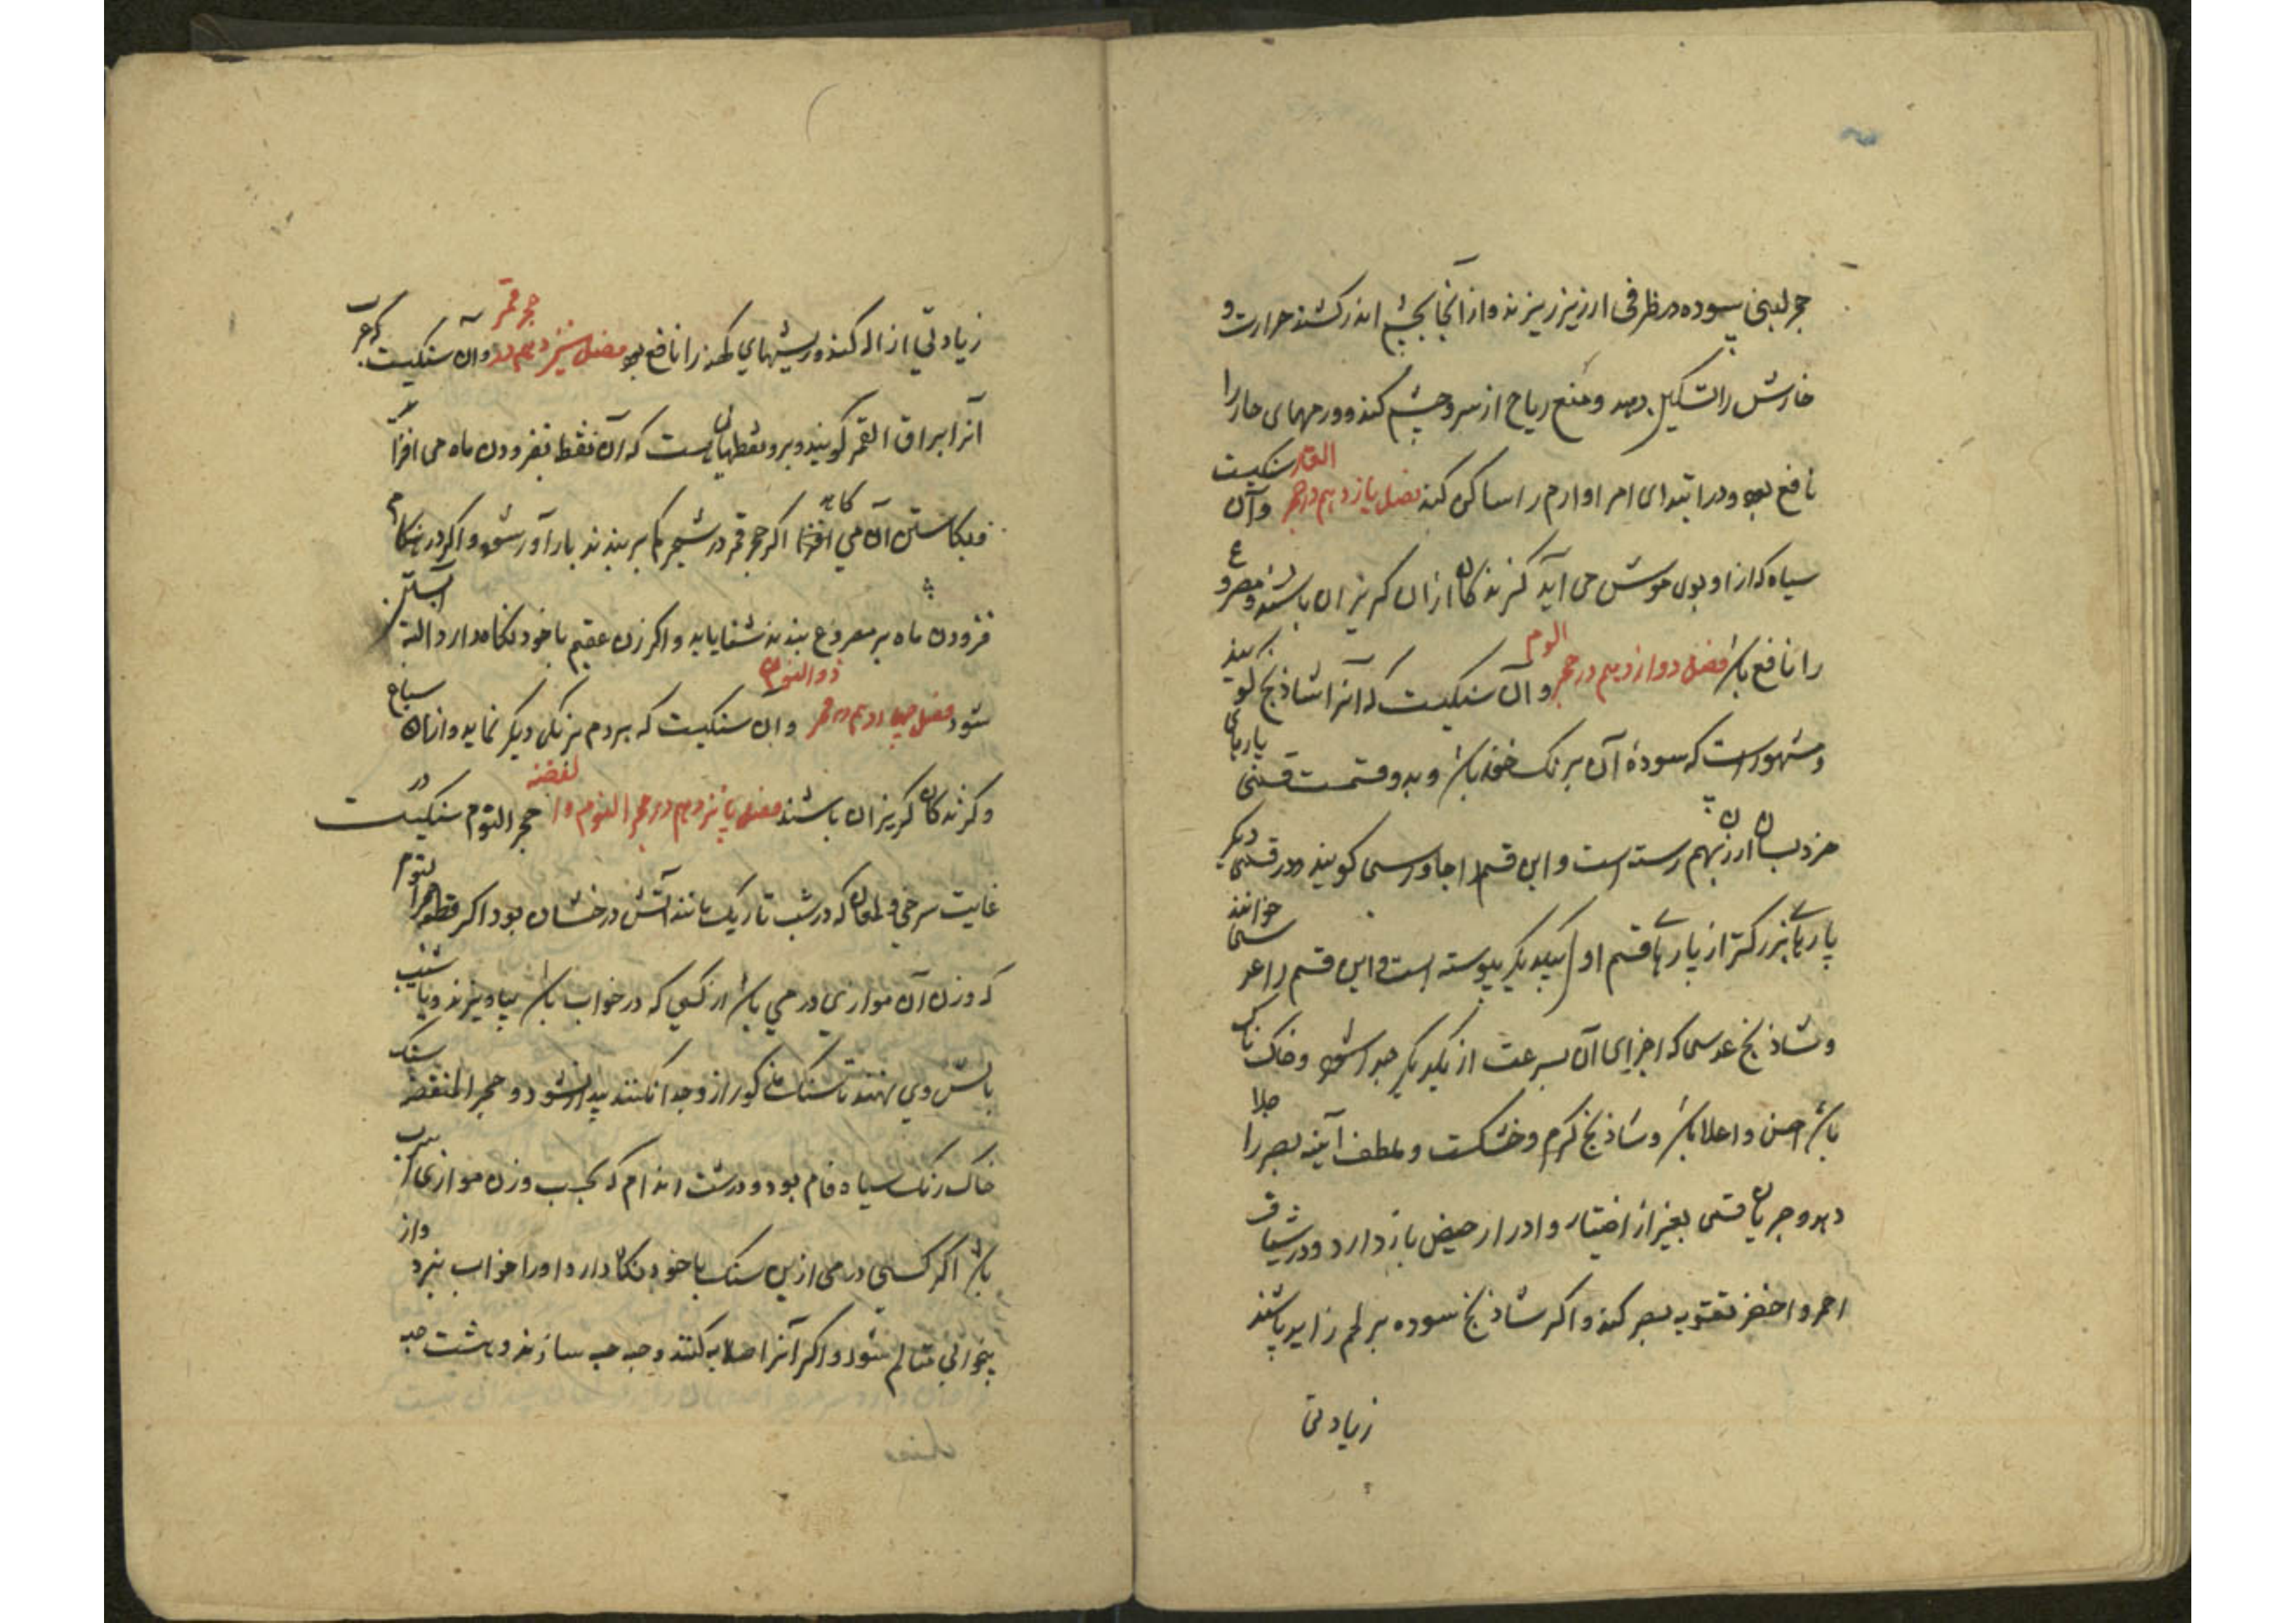 حجر لبنی سوده در ظرفی ارزیز ریزند و از آنجا بچشم اندر کشند حرارت و
خارش را تسکین دهد و منع ریاح از سر و چشم کند و ورمهای حار را
نافع بود و در ابتدای امر اورام را ساکن کند فصل یازدهم در حجر القار و آن سنکیست
سیاه که از او بوی خوش می آید کزندکان ازان کریزان باشند و مصروع
را نافع باشد فصل دوازدهم در حجر الدم و آن سنکیست که آنرا شاذنج کویند
و مشهور است که سودهٔ آن برنک خون باشد و بدو قسمت قسمی پارهای
خرد بسان ارزن بهم رسته است و این قسم را جاورسی کویند و در قسمی دیکر
پارهای بزرکتر از پارهای قسم اول بیکدیکر پیوسته است و این قسم را عدسی خوانند
و شاذنج عدسی که اجزای آن بسرعت از یکدیکر جدا شود و خاک ناک
باشد احسن و اعلا باشد و شاذنج کرم و خشکست و ملطف آینه بصر را جلا
دهد و جریان منی بغیر از اختیار و ادرار حیض باز دارد و در شیاف
احمر و اخضر تقویه بصر کند و اکر شاذنج سوده بر لحم زاید پاشند
زیادتی
زیادتی ازاله کند و ریشهای کهنه را نافع بود فصل سیزدهم در حجر قمر و آن سنکیست که عرب
آنرا براق القمر کویند و برو نقطهاییست که آن نقط بفزودن ماه می افزاید
و بکاستن آن می کاهد اکر حجر قمر در شجر کم بر بندند بارآور شود و اکر در هنکام
فزودن ماه بر مصروع بندند شفا یابد و اکر زن عقیم با خود نکاه دارد البته آبستن
شود فصل چهاردهم در حجر ذو النوم و آن سنکیست که هر دم برنکی دیکر نماید و ازان سباع
و کزندکان کریزان باشند فصل پانزدهم در حجر النوم و المنقضه حجر النوم سنکیست در
غایت سرخی و لمعان که در شب تاریک مانند آتش درخشان بود اکر قطعه حجر النوم
که وزن آن موازی درمی باشد از کسی که در خواب باشد بیاویزند و یا شیب
بالش وی نهند تا سنک مذکور ازو جدا نکنند بیدار نشود و حجر المنقضه سنک
خاک رنک سیاه فام بود و درشت اندام که بحسب وزن موازی سرب
باشد اکر کسی درمی ازین سنک با خود نکاه دارد او را خواب نبرد و از
بیخوابی متالم نشود و اکر آنرا صلایه کنند و حبه حبه سازند و هشت حبه